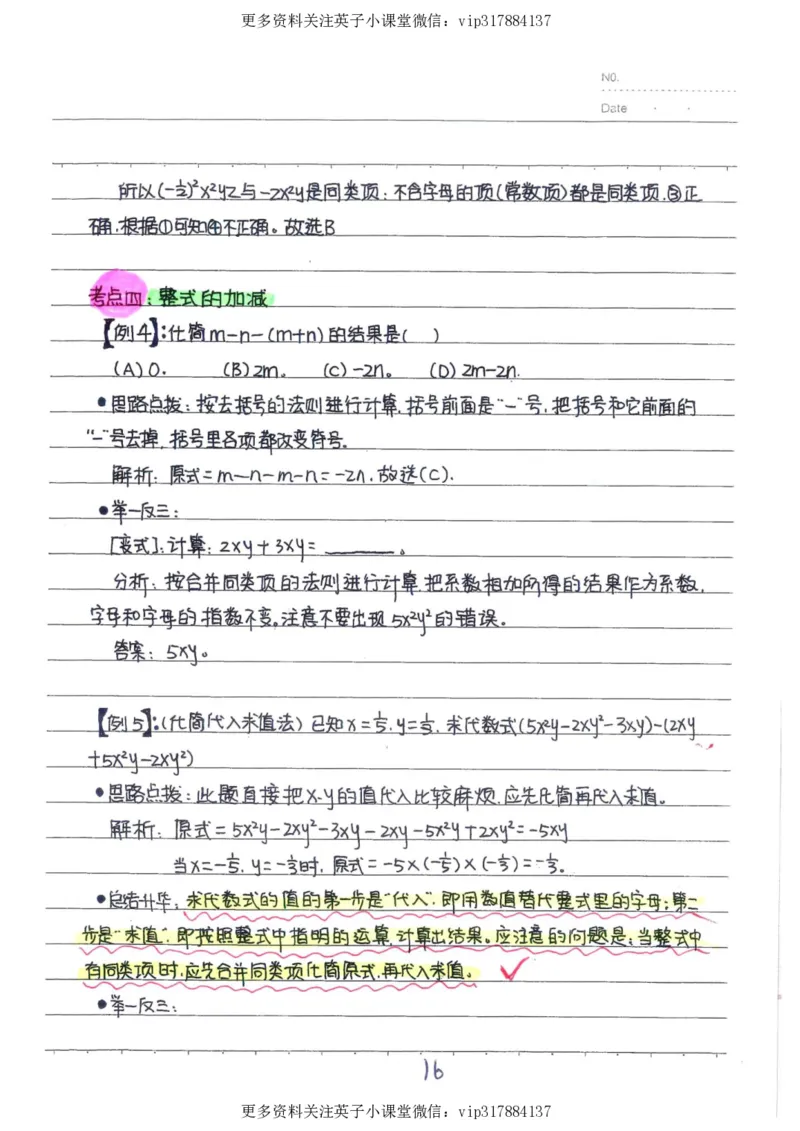 更多资料关注英子小课堂微信：vip317884137
NO.
Date
所以(-½)²x²yz与-2x²y是同类项；不含字母的项(常数项)都是同类项,③正
确,根据①可知④不正确。故选B
考点四：整式的加减
【例4】：化简m-n-(m+n)的结果是( )
(A)0. (B)2m。 (C)-2n。 (D)2m-2n.
•思路点拨：按去括号的法则进行计算,括号前面是“-”号,把括号和它前面的
“-”号去掉,括号里各项都改变符号.
解析：原式=m-n-m-n=-2n.故选(C).
•举一反三：
[变式]：计算：2xy+3xy=______。
分析：按合并同类项的法则进行计算,把系数相加所得的结果作为系数,
字母和字母的指数不变,注意不要出现5x²y²的错误。
答案：5xy。
【例5】：(化简代入求值法)已知x=⅕,y=⅓,求代数式(5x²y-2xy²-3xy)-(2xy
+5x²y-2xy²)
•思路点拨：此题直接把x、y的值代入比较麻烦,应先化简再代入求值。
解析：原式=5x²y-2xy²-3xy-2xy-5x²y+2xy²=-5xy
当x=-⅕,y=-⅓时,原式=-5×(-⅕)×(-⅓)=-⅓。
•总结升华：求代数式的值的第一步是“代入”,即用数值替代整式里的字母；第二
步是“求值”,即按照整式中指明的运算,计算出结果。应注意的问题是：当整式中
有同类项时,应先合并同类项化简原式,再代入求值。
•举一反三：
16
更多资料关注英子小课堂微信：vip317884137